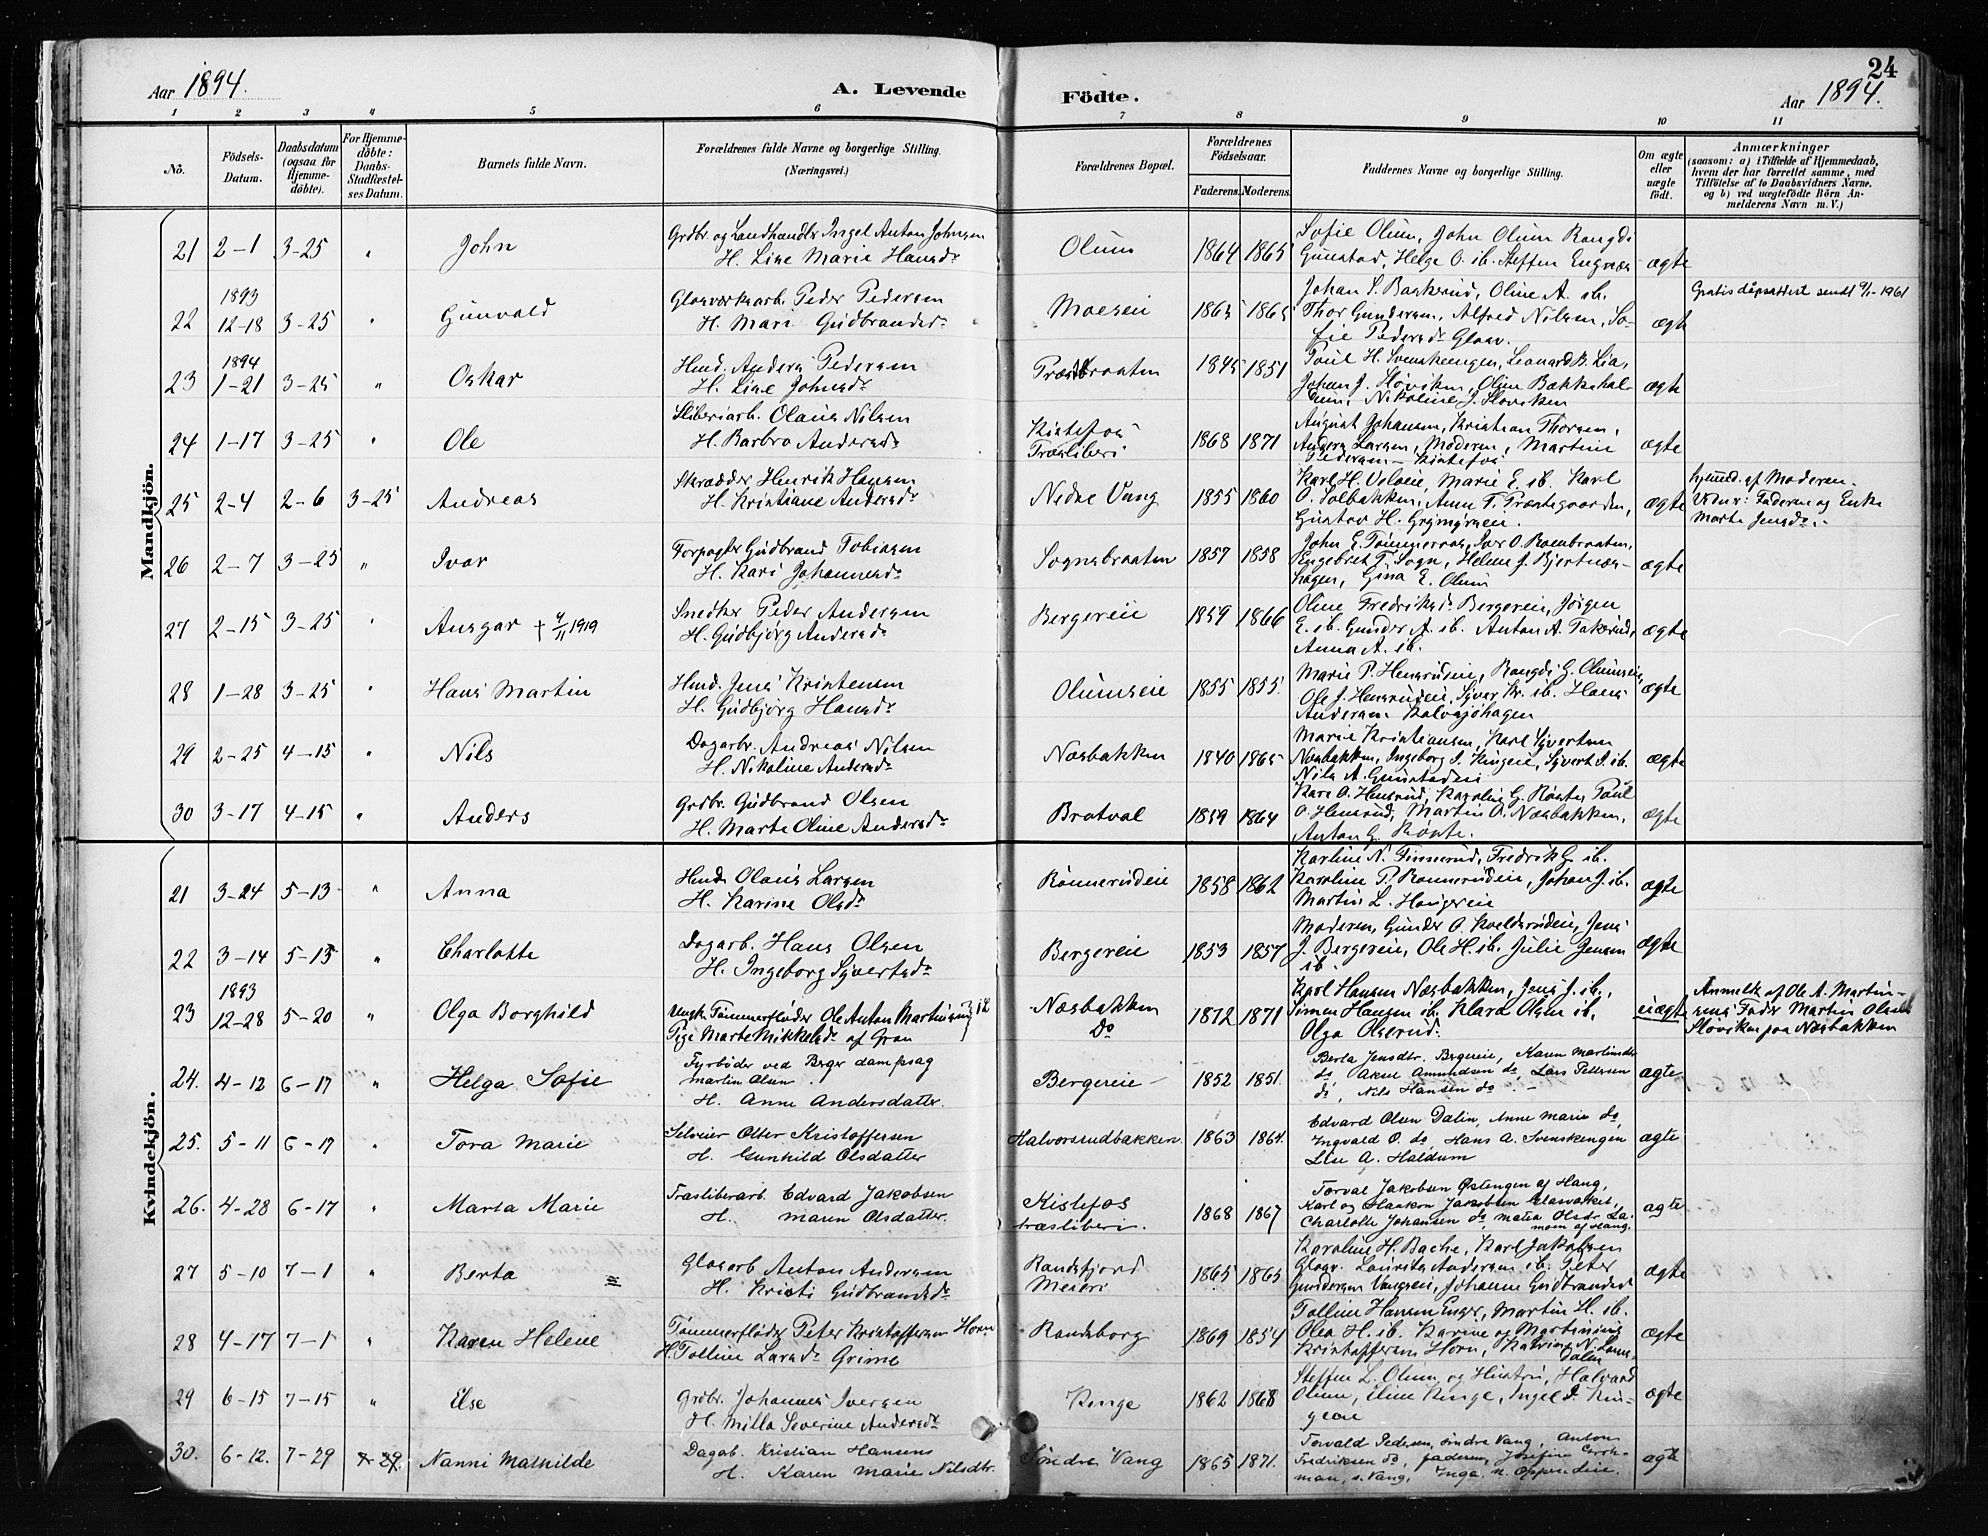 24
Aar 1894.
A. Levende
Födte.
Aar 1894.
1 2 3 4 5 6 7 8 9 10 11
No.
Födsels-
Datum.
Daabsdatum
(ogsaa for
Hjemme-
döbte).
For Hjemme-
döbte:
Daabs-
Stadfæstel-
ses Datum.
Barnets fulde Navn.
Forældrenes fulde Navne og borgerlige Stilling.
(Næringsvei.)
Forældrenes Bopæl.
Forældrenes
Födselsaar.
Faderens. Moderens.
Faddernes Navne og borgerlige Stilling.
Om ægte
eller
uægte
født.
Anmærkninger
(saasom: a) i Tilfælde af Hjemmedaab,
hvem der har forrettet samme, med
Tilföielse af to Daabsvidners Navne.
og b) ved uægtefödte Börn An-
melderens Navn m. V.)
Mandkjön.
21 2-1 3-25 " John
Grdbr. og Landhandler Ingel Anton Johnsen
H. Line Marie Hansdr
Olum 1864 1865
Sofie Olum, John Olum
Gunstad, Helge O. ib. Steffen
ægte
1893
22 12-18 3-25 " Gunvald
Glasværksarb. Peder Pedersen
H. Mari Gudbrandsdr
Moeseie 1865 1865
Johan S. Bakkerud, Oline A. ib.
Thor Gundersen, Alfred Nilsen, So-
fie Pedersdr Glasv.
ægte
Gratis dåpsattest sendt 9/1-1961
1894
23 1-21 3-25 " Oskar
Husmd. Anders Pedersen
H. Line Johnsdr
1845 1851
Poul H. Svenskengen, Leonard B. Lia,
Johan J. Høviken, Oline Bakkehal-
Nikoline J. Sloviken
ægte
24 1-17 3-25 " Ole
Sliberiarb. Olaus Nilsen
H. Barbro Andersdr
Kistefos
Træsliberi 1868 1871
August Johansen, Kristian Thorsen,
Anders Larsen, Moderen, Martine
Pedersen - Kistefos
ægte
25 2-4 2-6 3-25 Andreas
Skrædder Henrik Hansen
H. Kristiane Andersdr
Nedre Vang 1855 1860
Karl H. Veleie, Marie E. ib. Karl
O. Solbakken, Anne T. Præstegaarden,
Gustav H. Grymyreie.
ægte
hjemmd. af Moderen.
Vidner: Faderen og Enke
Marte Jensdr.
26 2-7 3-25 " Ivar
Forpagter Gudbrand Tobiasen
H. Kari Johannesdr
Sognsbraaten 1857 1858
John E. Tømmeraas, Iver O. Rambraaten,
Engebret T. Sogn, Helene J. Bjertnæs-
hagen, Gina E. Olum
ægte
27 2-15 3-25 " Ansgar † 9/11 1919
Snedker Peder Andersen
H. Gudbjørg Andersdr
Bergereie 1859 1866
Oline Fredriksdr Bergereie, Jørgen
E. ib. Gunder A. ib. Anton A. Takerud,
Anna A. ib.
ægte
28 1-28 3-25 " Hans Martin
Husmd. Jens Kristensen
H. Gudbjørg Hansdr
Olumseie 1855 1855.
Marie P. Hensrudeie, Rangdi G. Olumseie,
Ole J. Hensrudeie, Syver Kr. ib. Hans
Andersen Kalvsjøhagen
ægte
29 2-25 4-15 " Nils
Dagarbr. Andreas Nilsen
H. Nikoline Andersdr
Næsbakken 1840 1865
Marie Kristiansen, Karl Syvertsen
Næsbakken, Ingeborg I. Kingeie, Syvert I. ib.
Nils A. Gunstadeie
ægte
30 3-17 4-15 " Anders
Grdbr. Gudbrand Olsen
H. Marte Oline Andersdr
Bratval 1859 1864
Kari O. Hensrud, Karoline G. Rønte, Poul
O. Hensrud, Martin O. Næsbakken,
Anton G. Rønte.
ægte
Kvindekjön.
21 3-24 5-13 " Anna
Husmd. Olaus Larsen
H. Karine Olsdr
Rønnerudeie 1858 1862
Karline N. Finnerud, Fredrik G. ib.
Karoline P. Rønnerudeie, Johan J. ib.
Martin L. Haugereie
ægte
22 3-14 5-13 " Charlotte
Dagarb. Hans Olsen
H. Ingeborg Syvertsdr
Bergereie 1853 1857
Moderen, Gunder O. Kvelderudeie, Jens
J. Bergereie, Ole H. ib. Julie Jensen
ib.
ægte
1893
23 12-28 5-20 " Olga Borghild
Ungk. Tømmerfløder Ole Anton Martinsen
Pige Marte Mikkelsdr af Gran
Næsbakken
do 1872 1871
Karl Hansen Næsbakken, Jens J. ib.,
Simen Hansen ib. Klara Olsen ib.,
Olga Olserud.
uægte
Anmeldt af Ole A. Martin-
sens Fader Martin Olsen
Sloviken paa Næsbakken
24. 4-12 6-17 " Helga Sofie
Fyrbøder ved Berger dampsag
Martin Olsen.
H. Anne Andersdatter.
Bergereie 1852 1851.
Berta Jensdtr. Bergereie, Karen Martinsdtr
do, Aksel Amundsen do, Lars Pettersen
do, Nils Hansen do.
ægte
25. 5-11 6-17 " Tora Marie
Selveier Otter Kristoffersen
H. Gunhild Olsdatter
Halvorsrudbakken. 1863 1864.
Edvard Olsen Dalin, Anne Marie do,
Ingvald O. do, Hans A. Svenskengen
Lise A. Haldum
ægte
26. 4-28 6-17 " Marta Marie
Træsliberarb. Edvard Jakobsen
H. Maren Olsdatter.
Kistefos
træsliberi. 1868 1867
Torval Jakobsen Østengen af Haug,
Karl og Haakon Jakobsen Glasværket,
Charlotte Johansen do, Matea Olsdr La-
moen af Haug.
ægte
27 5-10 7-1 " Berta
Glasarb Anton Andersen
H. Kristi Gudbrandsdr
Randsfjord
Meieri 1865 1865
Karoline H. Bache, Karl Jakobsen
Glasv. Laurits Andersen ib. Peter
Gundersen Vangseie, Johanne Gudbrandsd
ægte
28 4-17 7-1 " Karen Helene
Tømmerfløder Peter Kristoffersen Horn
H. Tolline Larsdr Grime
Randsborg 1869 1854
Tolline Hansen Enger, Martin H. ib.
Olea H. ib. Karine og Martinius
Kristoffersen Horn,
ægte
29 6-15 7-15 " Else
Grdbr. Johannes Iversen
H. Milla Severine Andersdr
Kinge 1862 1868
Steffen L. Olum og Hustru, Halvard
Olum, Eline Kinge, Ingel I. Kin-
geeie
ægte
30. 6-12. 7-29 7-29. Nanni Mathilde
Dagab. Kristian Hansens
H. Karen Marie Nilsdtr.
Søndre Vang 1865 1871.
Torvald Pedersen, søndre Vang, Anton
Fredriksen do, faderen, Josefine
man, s. Vang, Inga n. Oppen Leie.
ægte